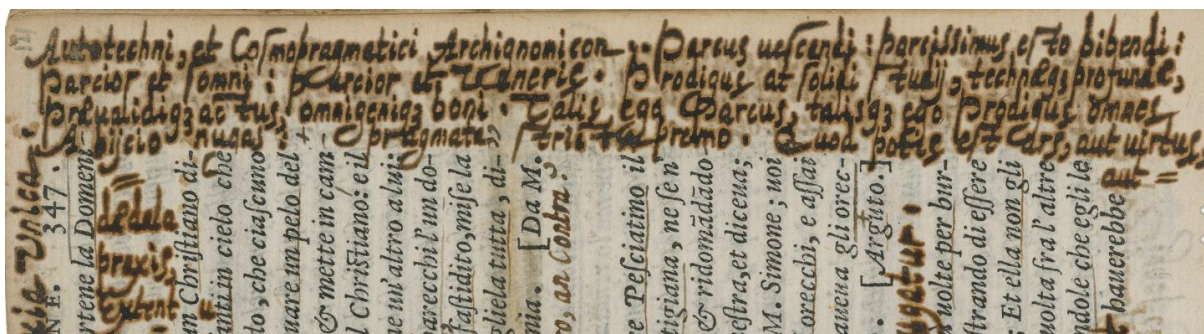 Autotechni, et Cosmopragmatici Archignomicon. Parcus uescendi: parcissimus esto bibendi:
Parcior et somni: parcior et Veneris. Prodigus at solidi studij, technæq3 profundæ,
Præualidiq3 actus, omnigeniq3 boni. Talis ego Parcus, talisq3 ego Prodigus omnes
Abijcio nugas: pragmata premo. Quod potis est Ars, aut uirtus,
aut =
dedala
praxis,
Extent
Unica
NE. 347.
rtene la Domeni
an Christiano di-
anti in cielo che
to, che ciascuno
uare un pelo del
& mette in cam
l Christiano: e il
ne un'altro a lui
parecchi l'un do-
fastidito, mise la
gliela tutta, di-
nia. [Da M.
o, an Contra?
e Pesciatino il
tigiana, ne se n'
& ridomãdãdo
estra, et dicena;
M. Simone; uoi
orecchi, e assai
auena gli orec-
. [Arguto.]
ugatur.
molte per bur-
strando di essere
Et ella non gli
volta fra l'altre
dole che egli le
hauerebbe